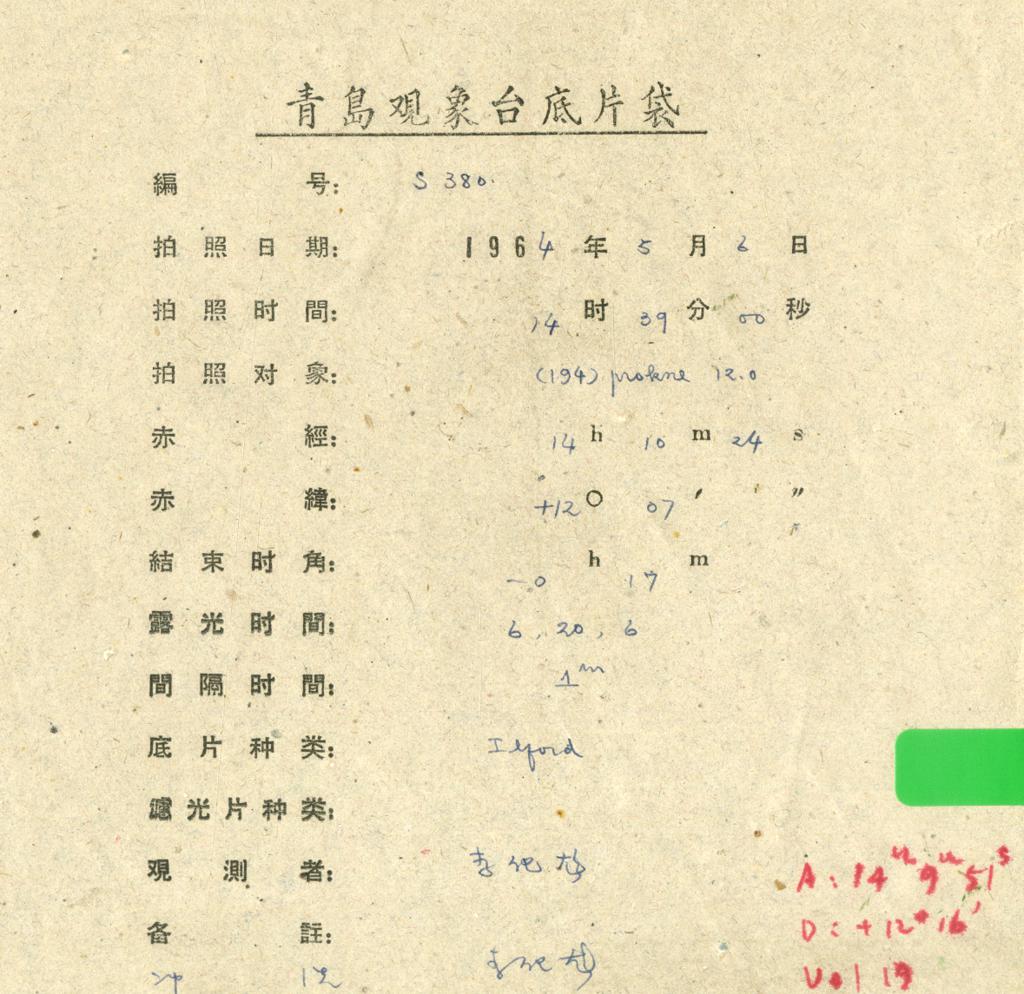 青島观象台底片袋
編 号： S 380.
拍照日期： 1964年5月6日
拍照时間： 14时39分00秒
拍照对象： (194) prokne 12.0
赤 經： 14h 10m 24s
赤 緯： +12° 07′ ″
結束时角： -0h 17m
露光时間： 6, 20, 6
間隔时間： 1m
底片种类： Ilford
濾光片种类：
观測者：
备 註：
冲 洗
A: 14h 9m 51s
D: +12° 16′
Vol 19